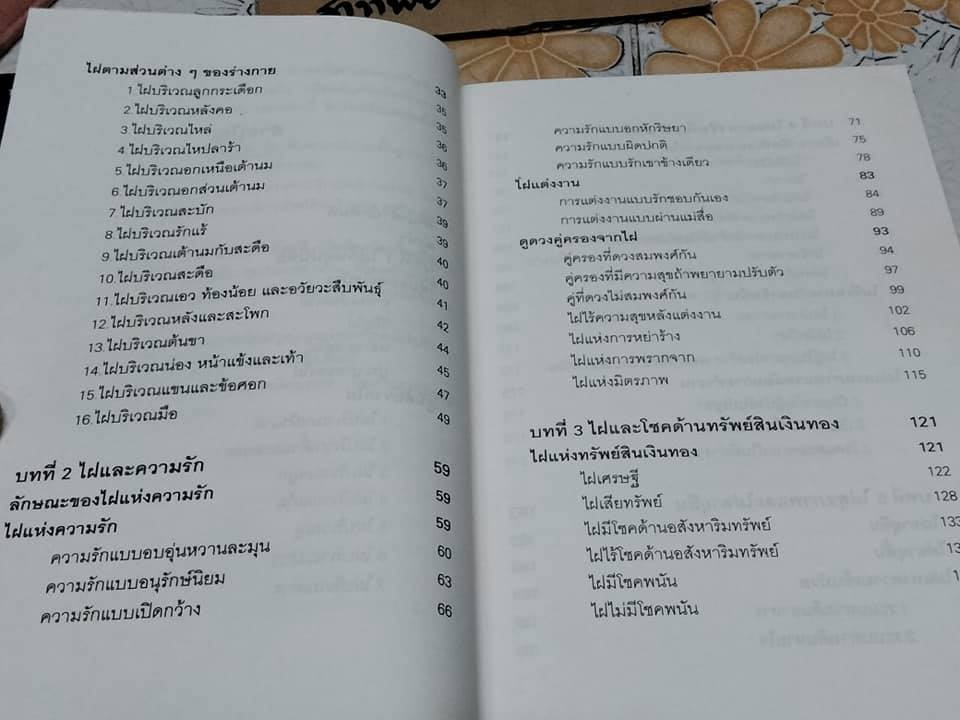 ไฝตามส่วนต่าง ๆ ของร่างกาย
1.ไฝบริเวณลูกกระเดือก 33
2.ไฝบริเวณหลังคอ 35
3.ไฝบริเวณไหล่ 35
4.ไฝบริเวณไหปลาร้า 36
5.ไฝบริเวณอกเหนือเต้านม 36
6.ไฝบริเวณอกส่วนเต้านม 37
7.ไฝบริเวณสะบัก 37
8.ไฝบริเวณรักแร้ 39
9.ไฝบริเวณเต้านมกับสะดือ 39
10.ไฝบริเวณสะดือ 40
11.ไฝบริเวณเอว ท้องน้อย และอวัยวะสืบพันธุ์ 40
12.ไฝบริเวณหลังและสะโพก 41
13.ไฝบริเวณต้นขา 42
14.ไฝบริเวณน่อง หน้าแข้งและเท้า 44
15.ไฝบริเวณแขนและข้อศอก 45
16.ไฝบริเวณมือ 47
49
บทที่ 2 ไฝและความรัก 59
ลักษณะของไฝแห่งความรัก 59
ไฝแห่งความรัก 59
ความรักแบบอบอุ่นหวานละมุน 60
ความรักแบบอนุรักษ์นิยม 63
ความรักแบบเปิดกว้าง 66
ความรักแบบอกหักริษยา 71
ความรักแบบผิดปกติ 75
ความรักแบบรักเขาข้างเดียว 78
ไฝแต่งงาน 83
การแต่งงานแบบรักชอบกันเอง 84
การแต่งงานแบบผ่านแม่สื่อ 89
ดูดวงคู่ครองจากไฝ 93
คู่ครองที่ดวงสมพงศ์กัน 94
คู่ครองที่มีความสุขถ้าพยายามปรับตัว 97
คู่ที่ดวงไม่สมพงศ์กัน 99
ไฝไร้ความสุขหลังแต่งงาน 102
ไฝแห่งการหย่าร้าง 106
ไฝแห่งการพรากจาก 110
ไฝแห่งมิตรภาพ 115
บทที่ 3 ไฝและโชคด้านทรัพย์สินเงินทอง 121
ไฝแห่งทรัพย์สินเงินทอง 121
ไฝเศรษฐี 122
ไฝเสียทรัพย์ 128
ไฝมีโชคด้านอสังหาริมทรัพย์ 133
ไฝไร้โชคด้านอสังหาริมทรัพย์
ไฝมีโชคพนัน
ไฝไม่มีโชคพนัน